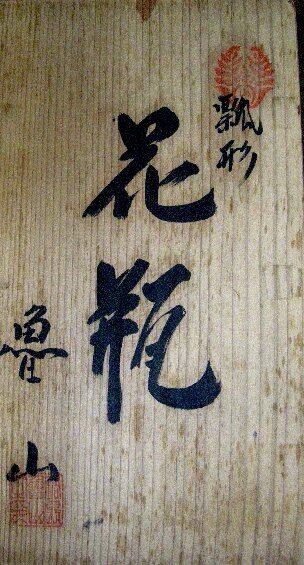 瓢形
花瓶
魯山